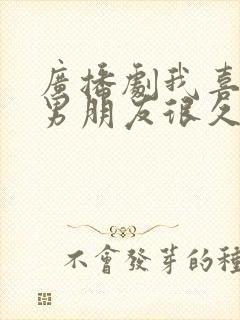 廣播劇我喜
男朋友很久
不會發芽的種